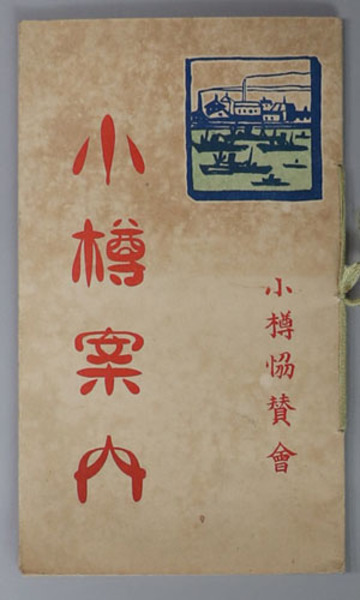 小樽協賛會
小樽案内